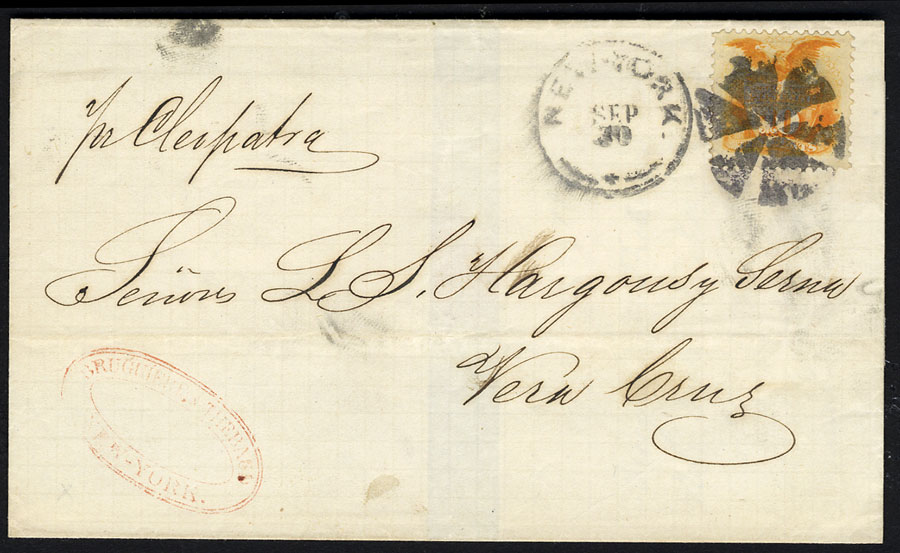 pr Cleopatra
NEW-YORK.
SEP
30
Señores L. S. Hargous y Serna
Vera Cruz
BRUGUIERE & THEBAUD
NEW-YORK.